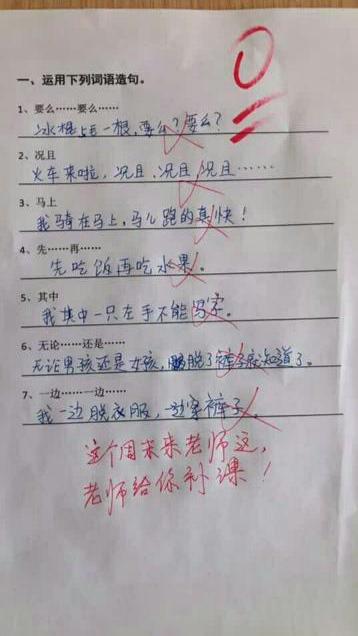 0
一、运用下列词语造句。
1、要么……要么……
冰棍上毛一根，要么？要么？
2、况且
火车来啦，况且，况且，况且……
3、马上
我骑在马上，马儿跑的真快！
4、先……再……
先吃饭再吃水果。
5、其中
我其中一只左手不能写字。
6、无论……还是……
无论男孩还是女孩，脱了裤子就知道了。
7、一边……一边……
我一边脱衣服，一边穿裤子。
这个周末来老师这，
老师给你补课！